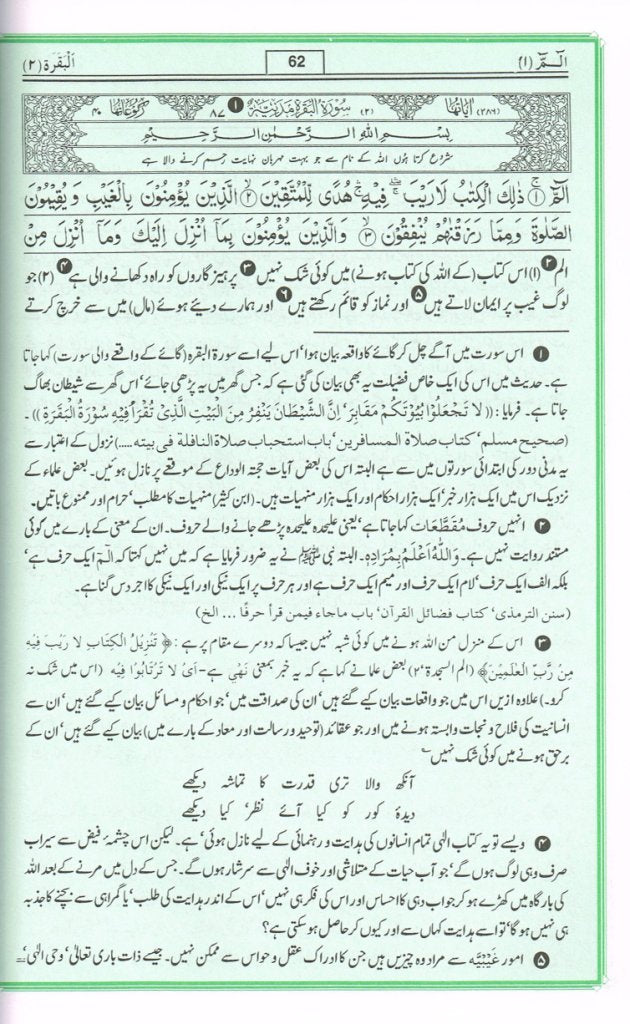 الٓمّٓ (۱)
62
اَلْبَقَرَة (۲)
اٰیَاتُهَا (۲۸۶)
(۲) سُوْرَةُ الْبَقَرَةِ مَدَنِيَّةٌ ❶ ۸۷
رُكُوْعَاتُهَا ۴۰
بِسْمِ اللهِ الرَّحْمٰنِ الرَّحِيْمِ
شروع کرتا ہوں اللہ کے نام سے جو بہت مہربان نہایت رحم کرنے والا ہے
الٓمّٓ ۚ﴿۱﴾ ذٰلِكَ الْكِتٰبُ لَا رَيْبَ ۛۚ فِيْهِ ۛۚ هُدًى لِّلْمُتَّقِيْنَ ۙ﴿۲﴾ الَّذِيْنَ يُؤْمِنُوْنَ بِالْغَيْبِ وَ يُقِيْمُوْنَ
الصَّلٰوةَ وَمِمَّا رَزَقْنٰهُمْ يُنْفِقُوْنَ ۙ﴿۳﴾ وَالَّذِيْنَ يُؤْمِنُوْنَ بِمَآ اُنْزِلَ اِلَيْكَ وَمَآ اُنْزِلَ مِنْ
الم ❷ (۱) اس کتاب (کے اللہ کی کتاب ہونے) میں کوئی شک نہیں ❸ پرہیزگاروں کو راہ دکھانے والی ہے ❹ (۲) جو
لوگ غیب پر ایمان لاتے ہیں ❺ اور نماز کو قائم رکھتے ہیں ❻ اور ہمارے دیئے ہوئے (مال) میں سے خرچ کرتے
❶ اس سورت میں آگے چل کر گائے کا واقعہ بیان ہوا' اس لیے اسے سورۃ البقرہ (گائے کے واقعے والی سورت) کہا جاتا
ہے۔ حدیث میں اس کی ایک خاص فضیلت یہ بھی بیان کی گئی ہے کہ جس گھر میں یہ پڑھی جائے' اس گھر سے شیطان بھاگ
جاتا ہے۔ فرمایا: ((لَا تَجْعَلُوْا بُيُوْتَكُمْ مَقَابِرَ' اِنَّ الشَّيْطَانَ يَنْفِرُ مِنَ الْبَيْتِ الَّذِيْ تُقْرَأُ فِيْهِ سُوْرَةُ الْبَقَرَةِ))۔
(صحیح مسلم' کتاب صلاۃ المسافرین' باب استحباب صلاۃ النافلۃ فی بیتہ.....) نزول کے اعتبار سے
یہ مدنی دور کی ابتدائی سورتوں میں سے ہے البتہ اس کی بعض آیات حجۃ الوداع کے موقعے پر نازل ہوئیں۔ بعض علماء کے
نزدیک اس میں ایک ہزار خبر' ایک ہزار احکام اور ایک ہزار منہیات ہیں۔ (ابن کثیر) منہیات کا مطلب' حرام اور ممنوع باتیں۔
❷ انہیں حروف مُقَطَّعَات کہا جاتا ہے' یعنی علیحدہ علیحدہ پڑھے جانے والے حروف۔ ان کے معنی کے بارے میں کوئی
مستند روایت نہیں ہے۔ وَاللهُ اَعْلَمُ بِمُرَادِهٖ۔ البتہ نبی ﷺ نے یہ ضرور فرمایا ہے کہ میں نہیں کہتا کہ الٓمٓ ایک حرف ہے'
بلکہ الف ایک حرف' لام ایک حرف اور میم ایک حرف ہے اور ہر حرف پر ایک نیکی اور ایک نیکی کا اجر دس گنا ہے۔
(سنن الترمذی' کتاب فضائل القرآن' باب ماجاء فیمن قرأ حرفًا ... الخ)
❸ اس کے منزل من اللہ ہونے میں کوئی شبہ نہیں جیسا کہ دوسرے مقام پر ہے : ﴿ تَنْزِيْلُ الْكِتَابِ لَا رَيْبَ فِيْهِ
مِنْ رَّبِّ الْعٰلَمِيْنَ﴾ (الم السجدۃ'۲) بعض علما نے کہا ہے کہ یہ خبر بمعنی نَہْی ہے۔ اَیْ لَا تَرْتَابُوْا فِيْهِ (اس میں شک نہ
کرو۔) علاوہ ازیں اس میں جو واقعات بیان کیے گئے ہیں' ان کی صداقت میں' جو احکام و مسائل بیان کیے گئے ہیں' ان سے
انسانیت کی فلاح و نجات وابستہ ہونے میں اور جو عقائد (توحید و رسالت اور معاد کے بارے میں) بیان کیے گئے ہیں' ان کے
برحق ہونے میں کوئی شک نہیں ؎
آنکھ والا تری قدرت کا تماشہ دیکھے
دیدۂ کور کو کیا آئے نظر' کیا دیکھے
❹ ویسے تو یہ کتاب الٰہی تمام انسانوں کی ہدایت و رہنمائی کے لیے نازل ہوئی' ہے۔ لیکن اس چشمۂ فیض سے سیراب
صرف وہی لوگ ہوں گے' جو آب حیات کے متلاشی اور خوف الٰہی سے سرشار ہوں گے۔ جس کے دل میں مرنے کے بعد اللہ
کی بارگاہ میں کھڑے ہو کر جواب دہی کا احساس اور اس کی فکر ہی نہیں' اس کے اندر ہدایت کی طلب' یا گمراہی سے بچنے کا جذبہ
ہی نہیں ہوگا' تو اسے ہدایت کہاں سے اور کیوں کر حاصل ہو سکتی ہے؟
❺ امور غَیْبِیَّہ سے مراد وہ چیزیں ہیں جن کا ادراک عقل و حواس سے ممکن نہیں۔ جیسے ذات باری تعالیٰ' وحی الٰہی'